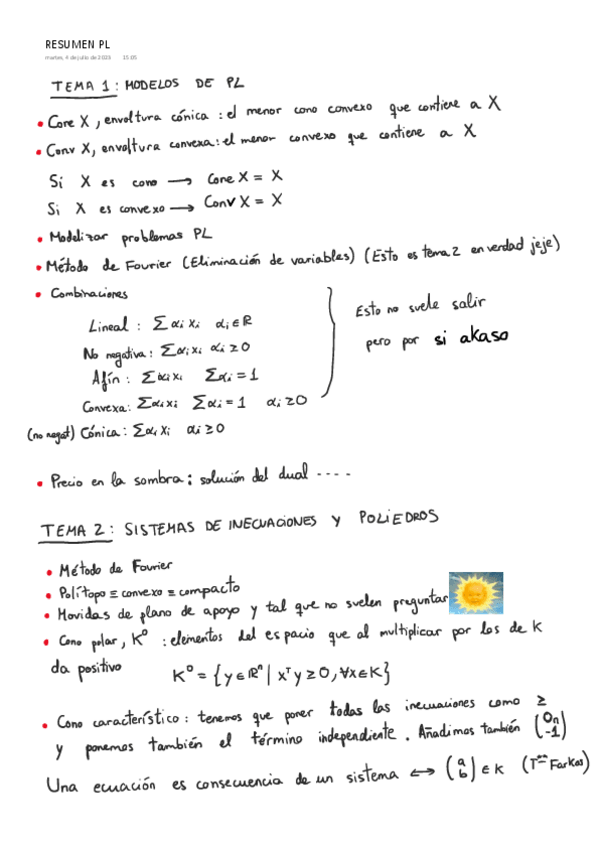 RESUMEN PL
martes, 4 de julio de 2023 15:05
TEMA 1: MODELOS DE PL
• Cone X, envoltura cónica: el menor cono convexo que contiene a X
• Conv X, envoltura convexa: el menor convexo que contiene a X
Si X es cono → Cone X = X
Si X es convexo → Conv X = X
• Modelizar problemas PL
• Método de Fourier (Eliminación de variables) (Esto es tema 2 en verdad jeje)
• Combinaciones
Lineal: Σαᵢxᵢ αᵢ∈ℝ
No negativa: Σαᵢxᵢ αᵢ≥0
Afín: Σαᵢxᵢ Σαᵢ=1
Convexa: Σαᵢxᵢ Σαᵢ=1 αᵢ≥0
(no negat) Cónica: Σαᵢxᵢ αᵢ≥0
Esto no suele salir
pero por si akaso
• Precio en la sombra: solución del dual ----
TEMA 2: SISTEMAS DE INECUACIONES Y POLIEDROS
• Método de Fourier
• Polítopo ≡ convexo ≡ compacto
• Movidas de plano de apoyo y tal que no suelen preguntar
• Cono polar, K⁰: elementos del espacio que al multiplicar por los de K
da positivo K⁰ = {y∈ℝⁿ | xᵀy≥0, ∀x∈K}
• Cono característico: tenemos que poner todas las inecuaciones como ≥
y ponemos también el término independiente. Añadimos también (0ₙ -1)
Una ecuación es consecuencia de un sistema ↔ (a b) ∈ K (Tᵐᵃ Farkas)